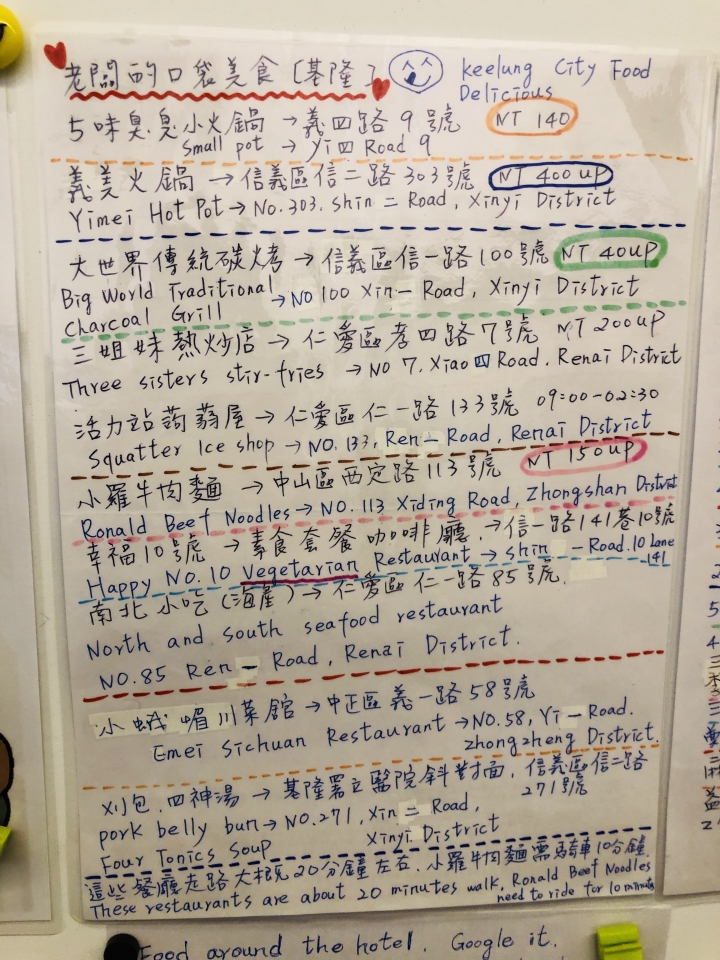 老闆的口袋美食〔基隆〕 keelung City Food
Delicious
5味臭臭小火鍋 → 義四路9號 NT 140
Small pot → Yi四 Road 9
義美火鍋 → 信義區信二路303號 NT 400 up
Yimei Hot Pot → No.303. Shin 二 Road, Xinyi District
大世界傳統碳烤 → 信義區信一路100號 NT 40up
Big World Traditional
Charcoal Grill → NO 100 Xin一 Road, Xinyi District
三姐妹熱炒店 → 仁愛區孝四路7號 NT 200up
Three sisters stir-fries → NO 7, Xiao四 Road. Renai District
活力站蒟蒻屋 → 仁愛區仁一路133號 09:00-02:30
Squatter Ice shop → NO. 133, Ren一 Road, Renai District
小羅牛肉麵 → 中山區西定路113號 NT 150up
Ronald Beef Noodles → NO. 113 Xiding Road, Zhongshan District
幸福10號 → 素食套餐咖啡廳, → 信一路141巷10號
Happy No. 10 Vegetarian Restaurant → shin 一 Road. 10 Lane 141
南北小吃(海產) → 仁愛區仁一路85號.
North and south seafood restaurant
NO.85 Ren一 Road, Renai District.
小峨嵋川菜館 → 中正區義一路58號
Emei Sichuan Restaurant → NO.58, Yi一Road.
Zhongzheng District.
刈包.四神湯 → 基隆署立醫院斜對面, 信義區信二路
271號
pork belly bun → NO.271, Xin 二 Road,
Four Tonics Soup Xinyi District
這些餐廳走路大概20分鐘左右.小羅牛肉麵需騎車10分鐘.
These restaurants are about 20 minutes walk, Ronald Beef Noodles
need to ride for 10 minutes
Food around the hotel. Google it.